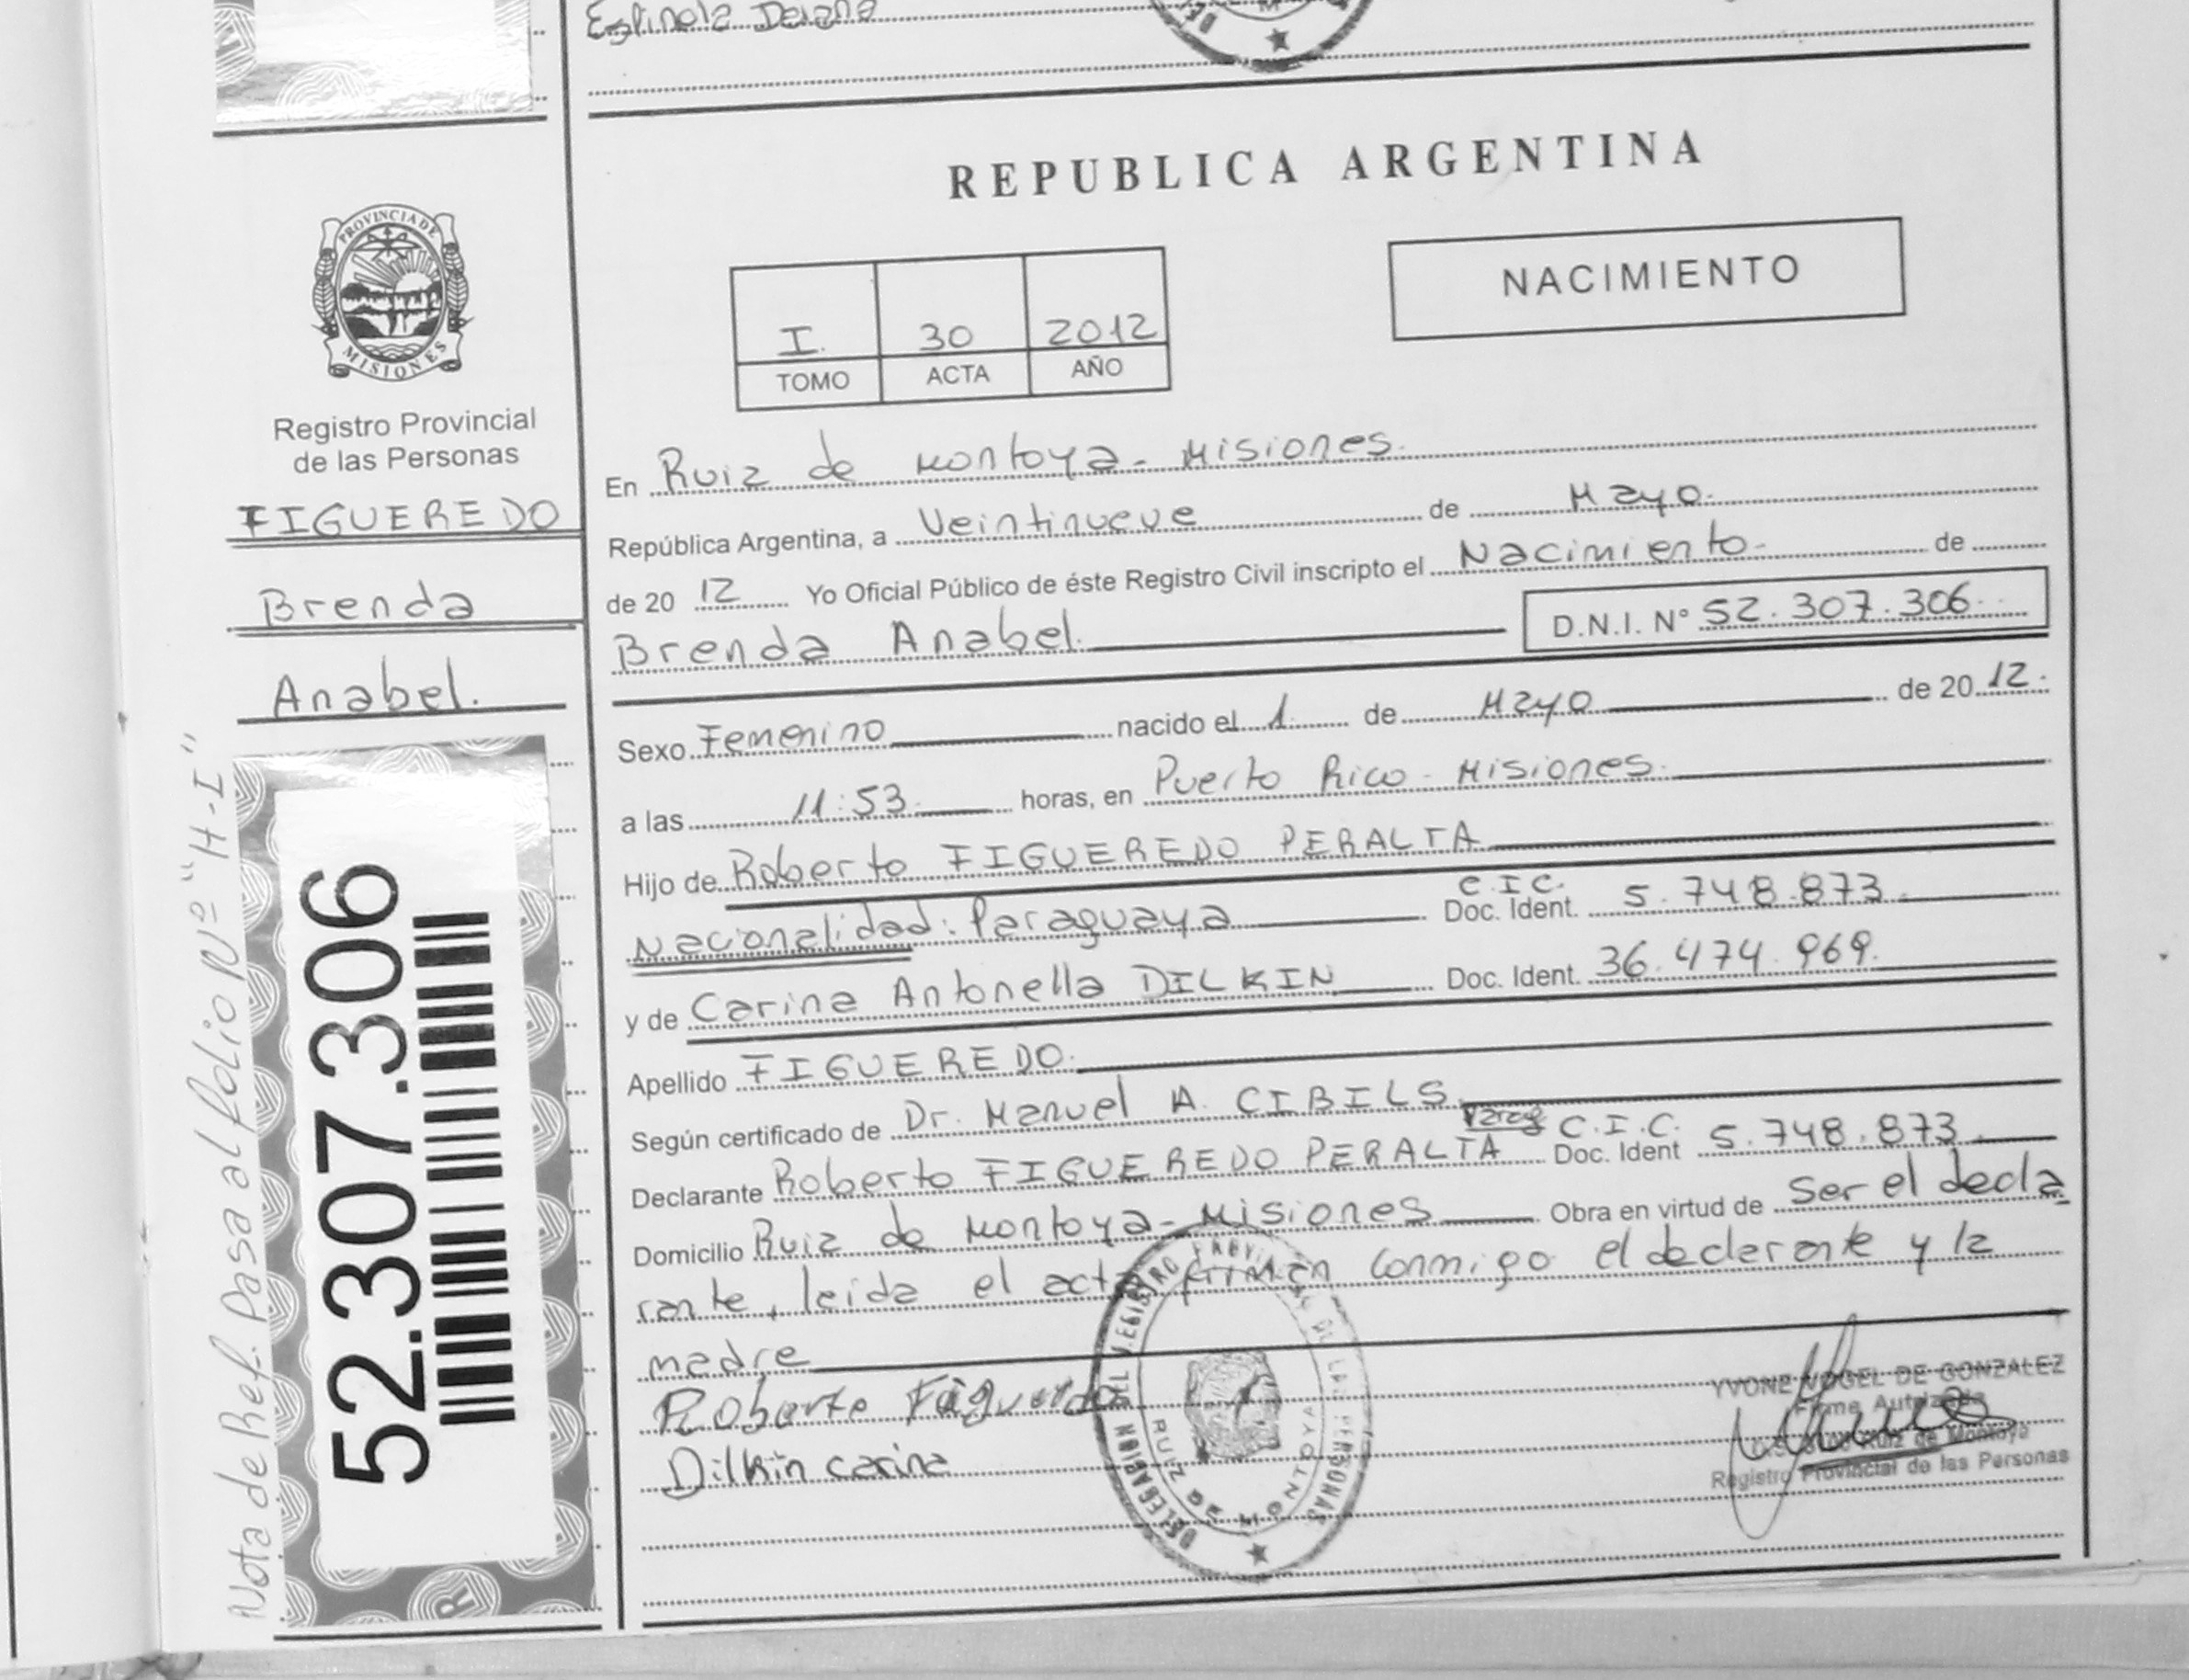 Espinola Daiana
REPUBLICA ARGENTINA
NACIMIENTO
I. 30 2012
TOMO ACTA AÑO
PROVINCIA DE
MISIONES
Registro Provincial
de las Personas
FIGUEREDO
Brenda
Anabel.
Nota de Ref. Pasa al folio Nº "H-I"
52.307.306
En Ruiz de Montoya - Misiones.
República Argentina, a Veintinueve de Mayo.
de 20 12 Yo Oficial Público de éste Registro Civil inscripto el Nacimiento. de
Brenda Anabel. D.N.I. Nº 52.307.306.
Sexo Femenino nacido el 1 de Mayo de 20 12.
a las 11:53 horas, en Puerto Rico - Misiones.
Hijo de Roberto FIGUEREDO PERALTA
Nacionalidad: Paraguaya C.I.C. Doc. Ident. 5.748.873.
y de Carina Antonella DILKIN Doc. Ident. 36.474.969.
Apellido FIGUEREDO.
Según certificado de Dr. Manuel A. CIBILS.
Declarante Roberto FIGUEREDO PERALTA Parag C.I.C. Doc. Ident 5.748.873.
Domicilio Ruiz de Montoya - Misiones Obra en virtud de Ser el decla
rante, leida el acta firman conmigo el declarante y la
madre
Roberto Figueredo
Dilkin carina
DELEGACION DEL REGISTRO PROVINCIAL DE LAS PERSONAS
RUIZ DE MONTOYA
YVONE VOGEL DE GONZALEZ
Firma Autrizada
Ruiz de Montoya
Registro Provincial de las Personas